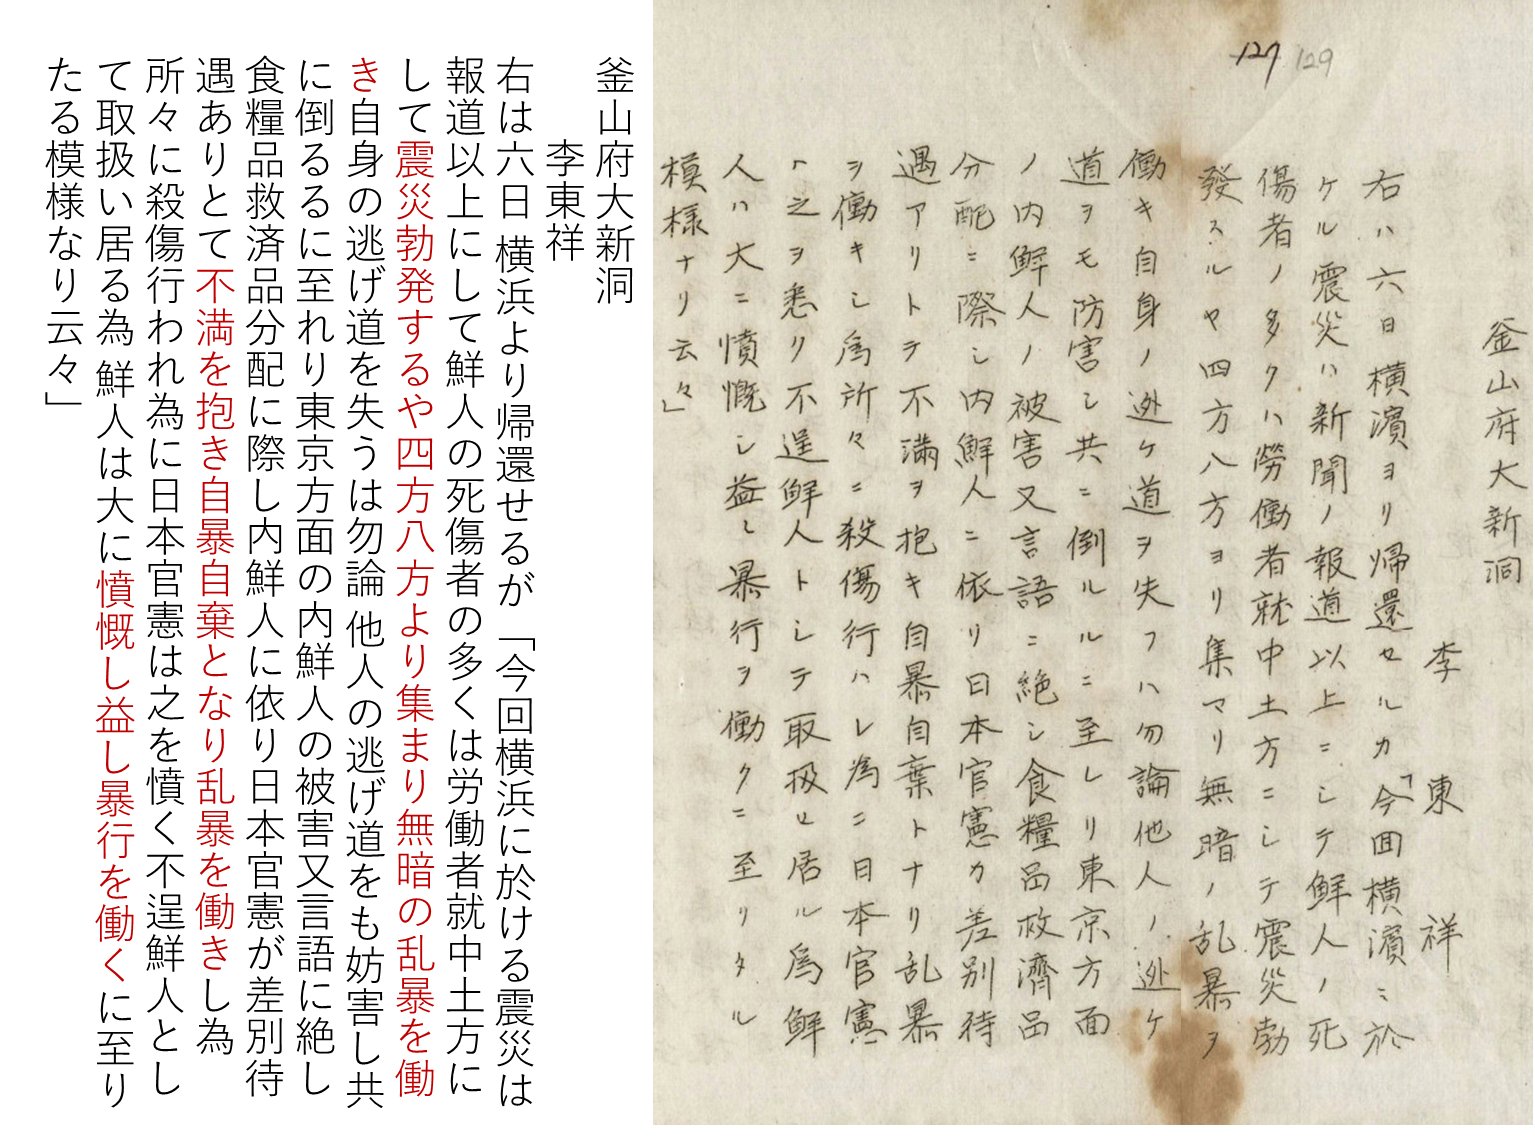 釜山府大新洞
李東祥
右は六日 横浜より帰還せるが「今回横浜に於ける震災は
報道以上にして鮮人の死傷者の多くは労働者就中土方に
して震災勃発するや四方八方より集まり無暗の乱暴を働
き自身の逃げ道を失うは勿論 他人の逃げ道をも妨害し共
に倒るるに至れり東京方面の内鮮人の被害又言語に絶し
食糧品救済品分配に際し内鮮人に依り日本官憲が差別待
遇ありとて不満を抱き自暴自棄となり乱暴を働きし為
所々に殺傷行われ為に日本官憲は之を憤く不逞鮮人とし
て取扱い居る為 鮮人は大に憤慨し益し暴行を働くに至り
たる模様なり云々」
127 129
釜山府大新洞
李東祥
右ハ六日横濱ヨリ帰還セルカ「今回横濱ニ於
ケル震災ハ新聞ノ報道以上ニシテ鮮人ノ死
傷者ノ多クハ勞働者就中土方ニシテ震災勃
發スルヤ四方八方ヨリ集マリ無暗ノ乱暴ヲ
働キ自身ノ逃ケ道ヲ失フハ勿論他人ノ逃ケ
道ヲモ防害シ共ニ倒ルルニ至レリ東京方面
ノ内鮮人ノ被害又言語ニ絶シ食糧品救濟品
分配ニ際シ内鮮人ニ依リ日本官憲カ差別待
遇アリトテ不満ヲ抱キ自暴自棄トナリ乱暴
ヲ働キシ為所々ニ殺傷行ハレ為ニ日本官憲
ハ之ヲ悉ク不逞鮮人トシテ取扱ヒ居ル為鮮
人ハ大ニ憤慨シ益々暴行ヲ働クニ至リタル
模様ナリ云々」